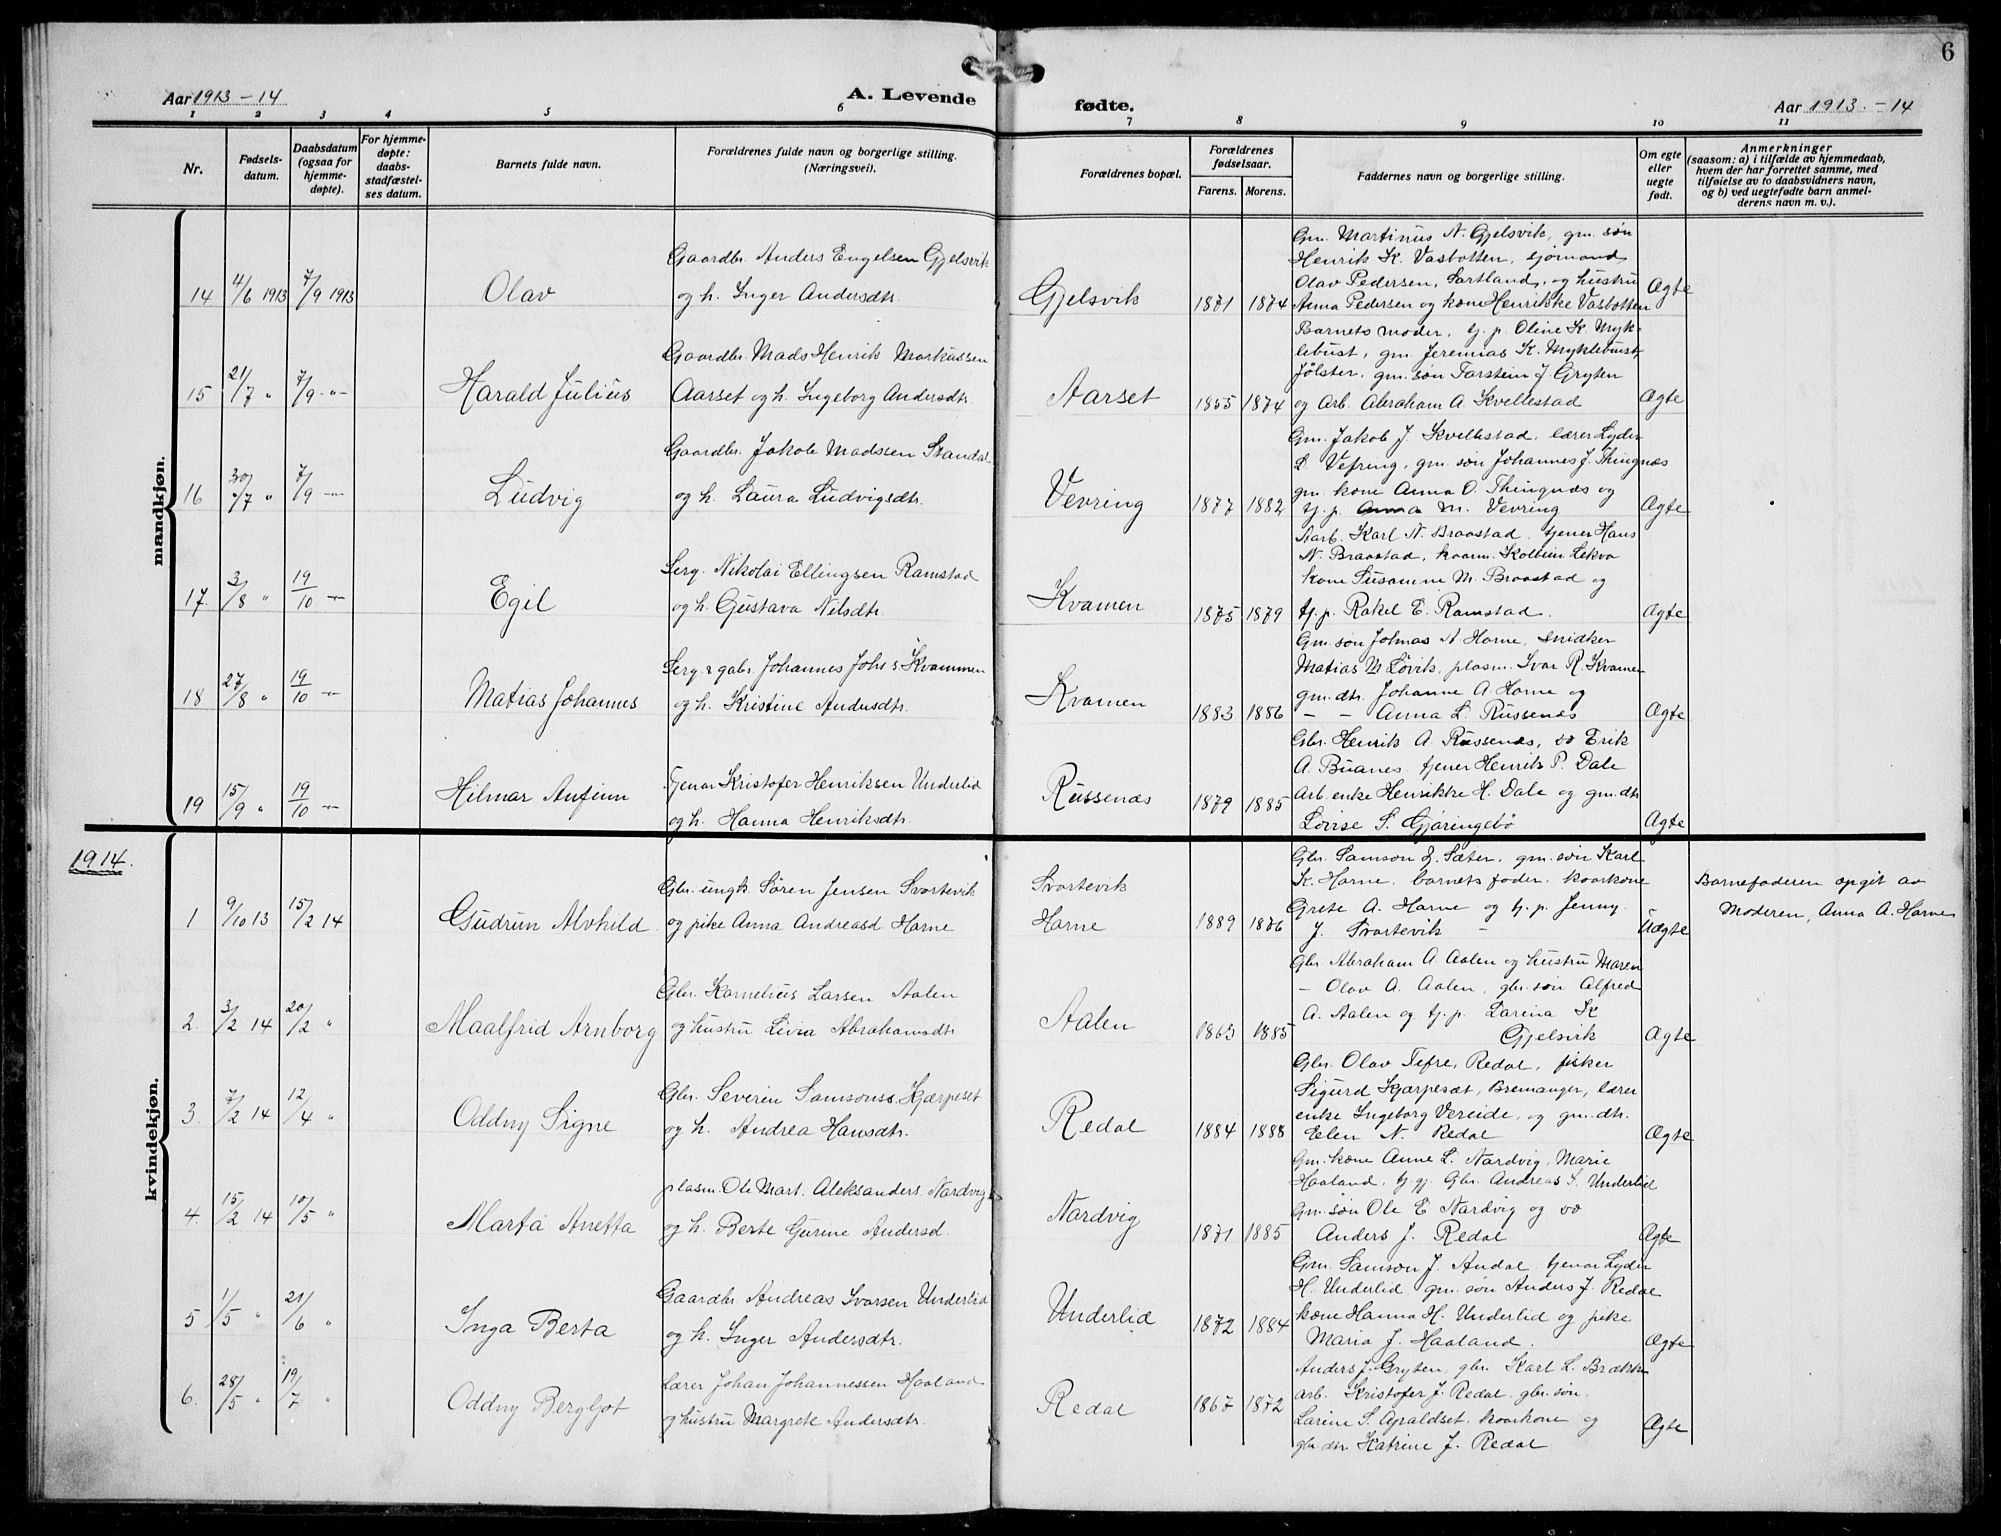 6
Aar 1913 - 14
A. Levende fødte.
Aar 1913. - 14
1 2 3 4 5 6 7 8 9 10 11
Nr.
Fødsels-
datum.
Daabsdatum
(ogsaa for
hjemme-
døpte).
For hjemme-
døpte:
daabs-
stadfæstel-
ses datum.
Barnets fulde navn.
Forældrenes fulde navn og borgerlige stilling.
(Næringsvei).
Forældrenes bopæl.
Forældrenes
fødselsaar.
Farens. Morens.
Faddernes navn og borgerlige stilling.
Om egte
eller
uegte
født.
Anmerkninger
(saasom: a) i tilfælde av hjemmedaab,
hvem der har forrettet samme, med
tilføielse av to daabsvidners navn,
og b) ved uegtefødte barn anmel-
derens navn m. v.).
mandkjøn.
14 4/6 1913 7/9 1913 Olav
Gaardbr. Anders Engelsen Gjelsvik
og h. Inger Andersdtr.
Gjelsvik 1871 1874
Gm. Martinus N. Gjelsvik, gm. søn
Henrik K. Vasbotten, sjømand
Olav Pedersen, Sartland, og hustru
Anna Pedersen og kone Henrikke Vasbotten
Ægte
15 21/7 " 7/9 -"- Harald Julius
Gaardbr. Mads Henrik Markussen
Aarset og h. Ingeborg Andersdtr.
Aarset 1855 1874
Barnets moder, tj. p. Oline K. Myk-
lebust, gm. Jeremias K. Myklebust,
Jølster, gm. søn Torstein J. Gryten
og Arb. Abraham A. Kvellestad
Ægte
16 30/7 " 7/9 -"- Ludvig
Gaardbr. Jakob Madssen Standal
og h. Laura Ludvigsdtr.
Vevring 1877 1882
Gm. Jakob J. Kvellestad, lærer Lyder
L. Vefring, gm. søn Johannes J. Thingnæs
gm. kone Anna O. Thingnæs og
tj. p. Anna M. Vevring
Ægte
17. 3/8 " 19/10 -"- Egil
Serg. Nikolai Ellingsen Ramstad
og h. Gustava Nilsdtr.
Kvamen 1875 1879
Aarb. Karl N. Braastad, tjener Hans
N. Braastad, kaarm. Kolbein Lekva
kone Susanne M. Braastad og
tj. p. Rakel E. Ramstad.
Ægte
18 27/8 " 19/10 -"- Matias Johannes
Serg. & gabr. Johannes Johs s. Kvammen
og h. Kristine Andersdtr.
Kvamen 1883 1886
Gm. søn Johnas A Horne, snidker
Matias M Løvik, plasm. Ivar R. Kvamen
gm. dtr. Johanne A. Horne og
- - Anna L. Russenæs
Ægte
19 15/9 " 19/10 -"- Hilmar Anfinn
Tjener Kristofer Henriksen Underlid
og h. Hanna Henriksdtr.
Russenæs 1879 1885
Gbr. Henrik A. Russenæs, do Erik
A. Buanes, tjener Henrik P. Dale
Arb. enke Henrikke H. Dale og gm. dtr.
Lovise S. Gjøringebø
Ægte
1914.
kvindekjøn.
1 9/10 13 15/2 14 Gudrun Alvhild.
Gbr. ungk. Søren Jensen Svortevik
og pike Anna Andreasd Horne
Svortevik
Horne 1889 1876
Gbr. Samson J. Sæter, gm. søn Karl
K. Horne, barnets fader, kaarkone
Grete A. Horne og tj. p. Jenny
J. Svortevik -
Uægte
Barnefaderen opgit av
Moderen, Anna A. Horne
2. 3/2 14 20/2 " Maalfrid Arnborg
Gbr. Kornelius Larsen Aalen
og hustru Livia Abrahamsdtr
Aalen 1863 1885
Gbr. Abraham A Aalen og hustru Maren
- Olav A. Aalen, gbr. søn Alfred
A. Aalen og tj. p. Larina K
Gjelsvik
Ægte
3. 7/2 14 12/4 " Oddny Signe
Gbr. Severin Samsonss. Kjærpeset
og h. Andrea Hansdtr.
Redal 1884 1888
Gbr. Olav Tefre, Redal, fisker
Sigurd Kjærpesæt, Bremanger, lærer
enke Ingeborg Vereide, og gm. dtr.
Elen N. Redal
Ægte
4. 15/2 14 10/5 " Marta Anetta
plasm. Ole Mart. Aleksanders. Nordvig
og h. Berte Gurine Andersd.
Nordvig 1871 1885
Gm. kone Anne L. Nordvig, Marie
Haaland, tj. Gbr. Andreas S. Underlid
Gm. søn Ole E Nordvig og do
Anders J. Redal
Ægte
5 1/5 " 21/6 " Inga Berta
Gaardbr. Andreas Ivarsen Underlid
og h. Inger Andersdtr.
Underlid 1872 1884
Gm. Samson J. Andal tjener Lyder
H. Underlid gm. søn Anders J. Redal
kone Hanna H. Underlid og pike
Maria J. Haaland.
Ægte
6. 28/5 " 19/7 " Oddny Bergljot
Lærer Johan Johannessen Haaland
og hustru Margrete Andersdtr.
Redal 1867 1872
Anders J. Gryten, gbr. Karl L. Brække
arb. Kristofer J. Redal, gbr. søn.
Larine S. Apaldset kaarkone og
gbr. dtr. Katrine J. Redal
Ægte